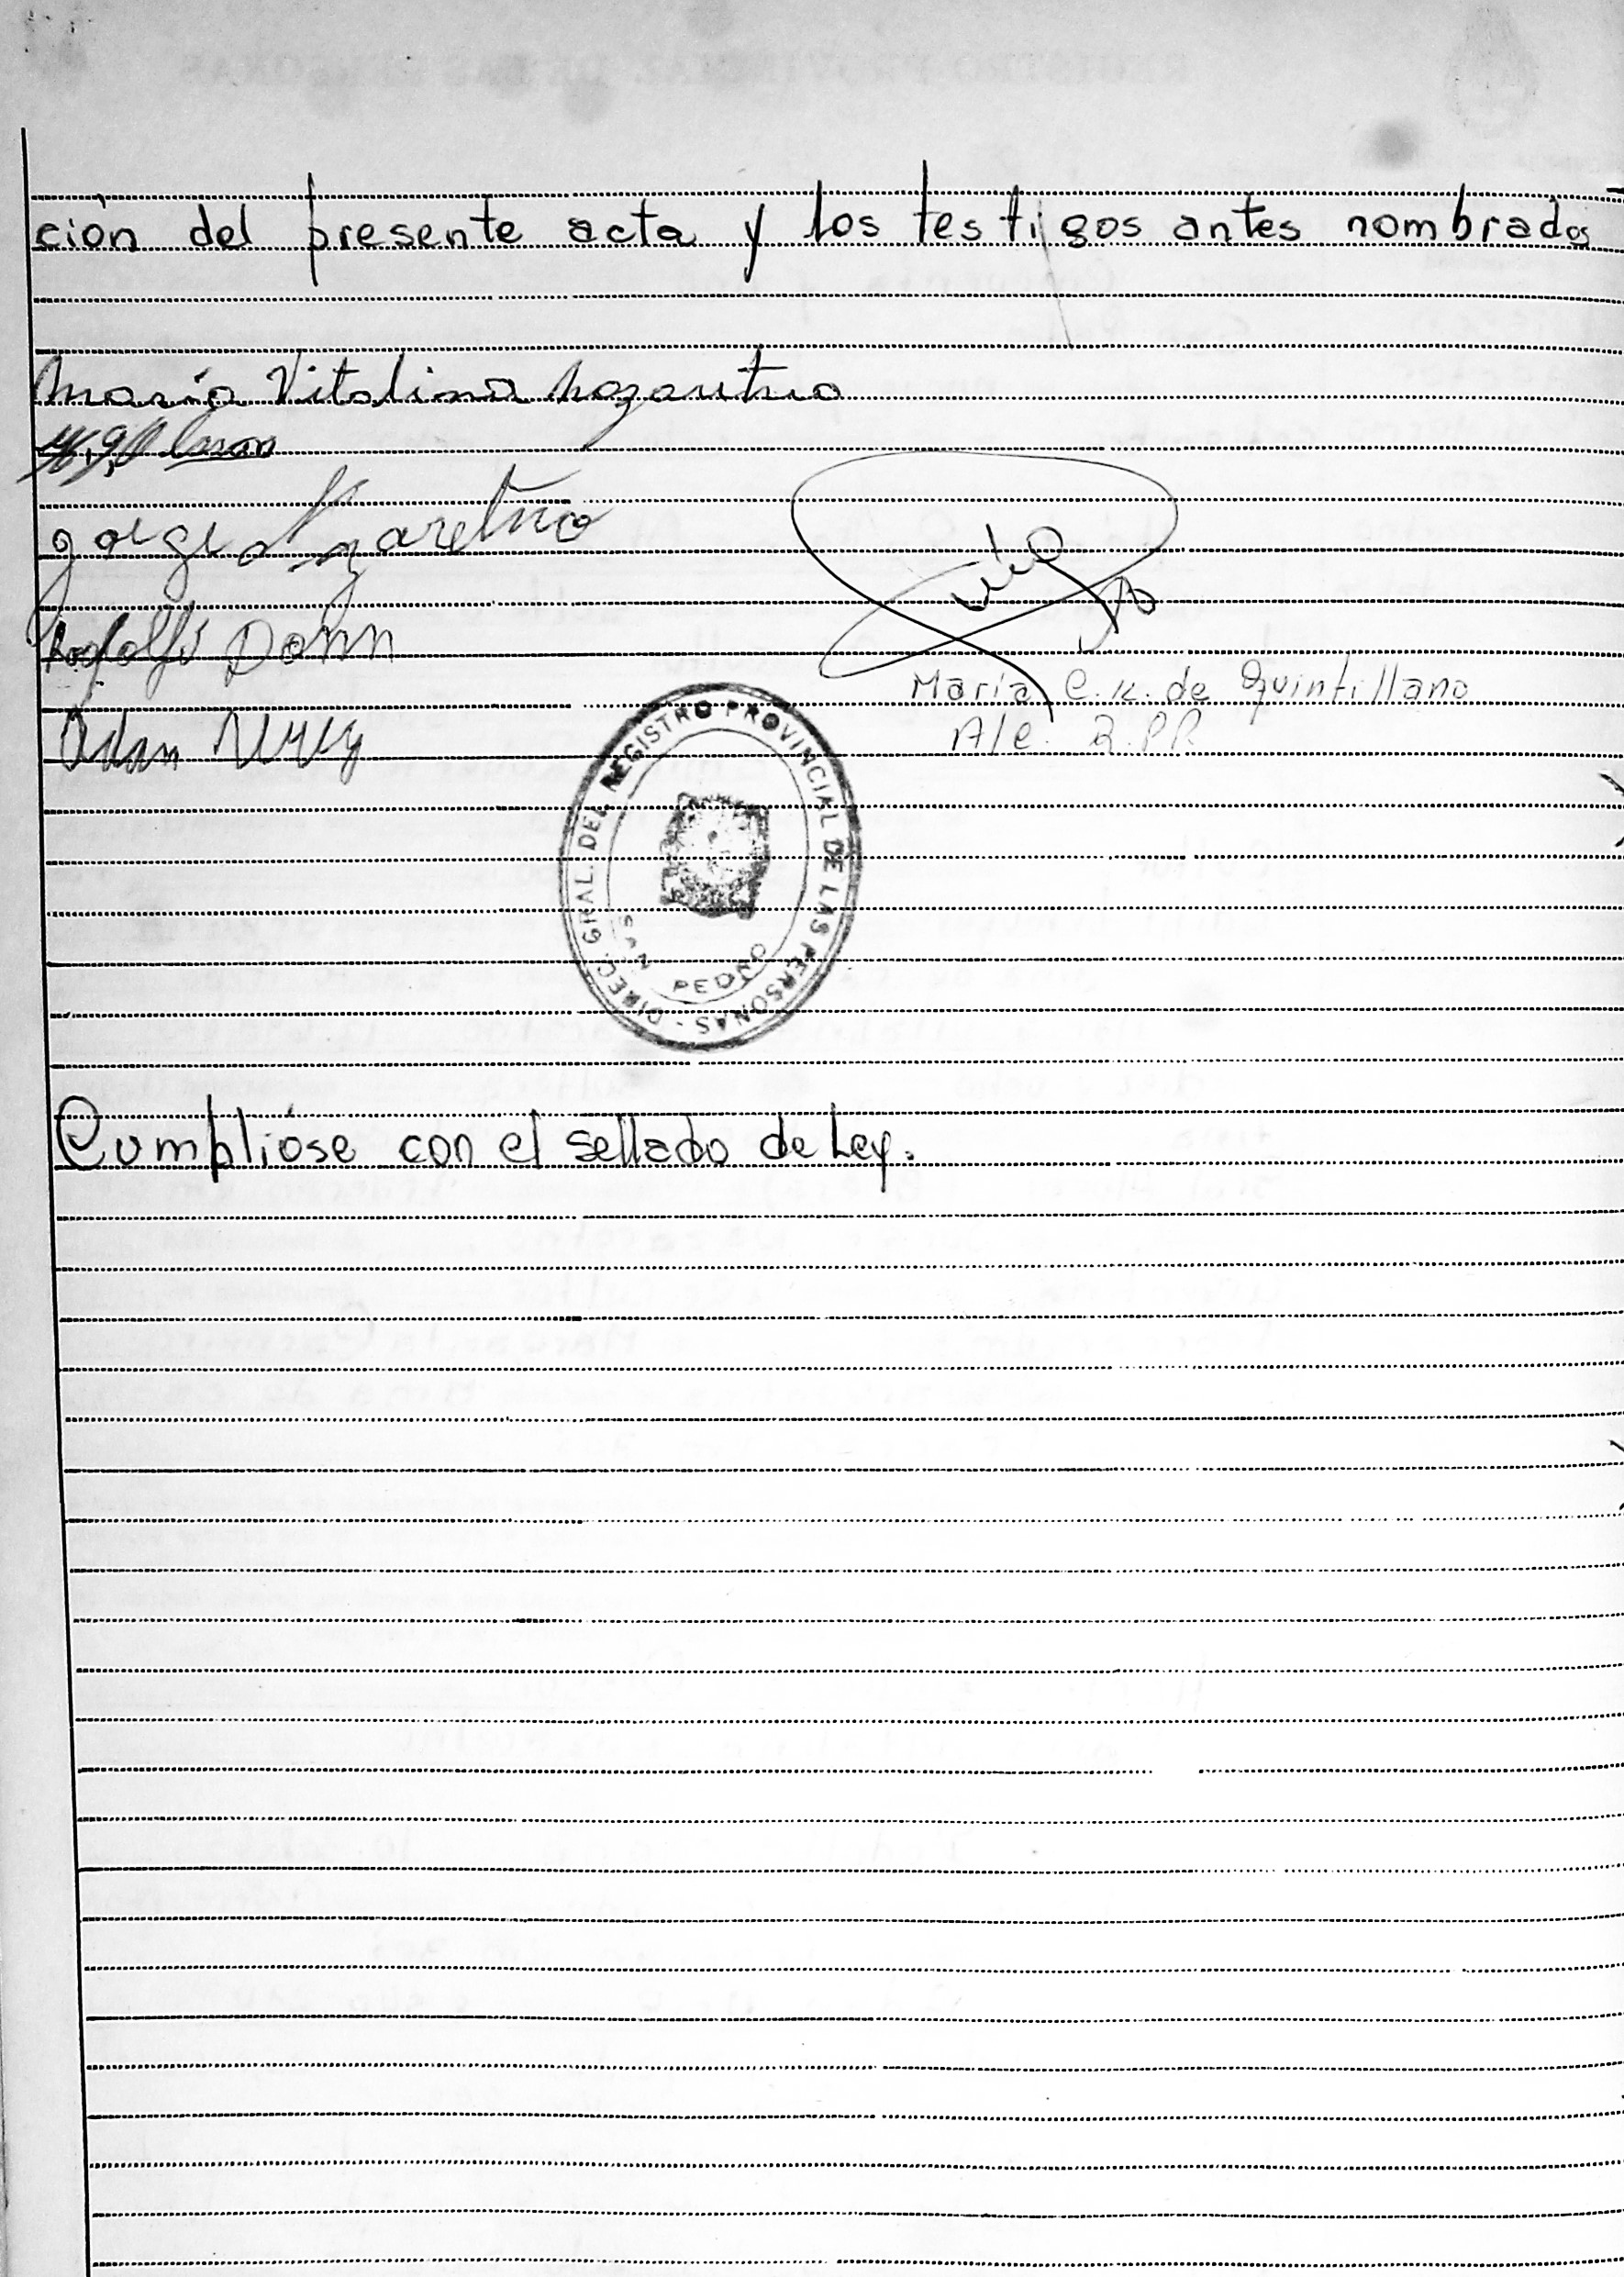 ción del presente acta y los testigos antes nombrados
María Vitalina Nazaretno
Jorge Nazaretno
Rodolfo Dann
María C. K. de Quintillano
A/C. R.P.P.
DIREC. GRAL. DEL REGISTRO PROVINCIAL DE LAS PERSONAS -
SAN PEDRO
Cumplióse con el sellado de Ley.